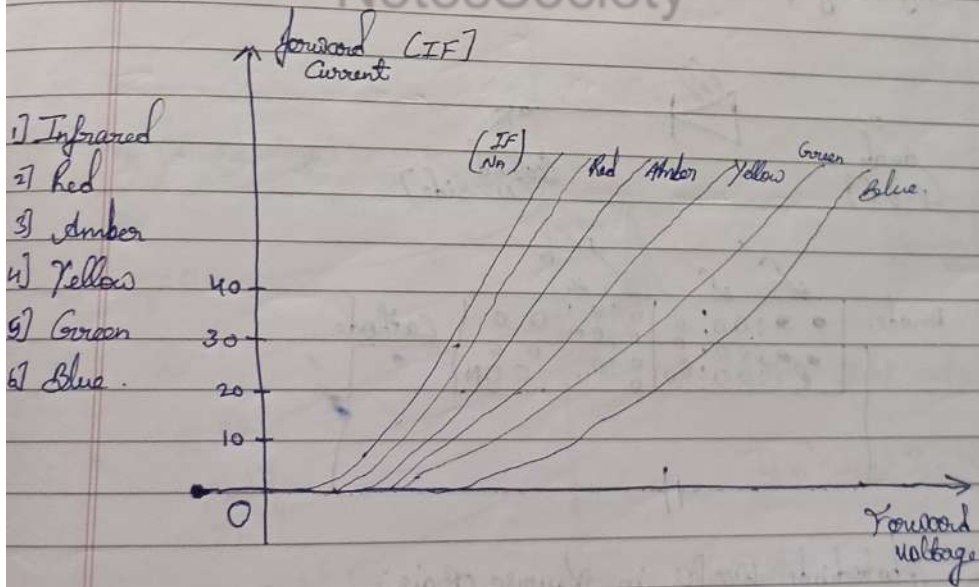 NotesSociety
forward [IF]
Current
1] Infrared
2] Red
3] Amber
4] Yellow
5] Green
6] Blue.
(IF
NA)
Red
Amber
Yellow
Green
Blue.
40
30
20
10
O
Forward
voltage